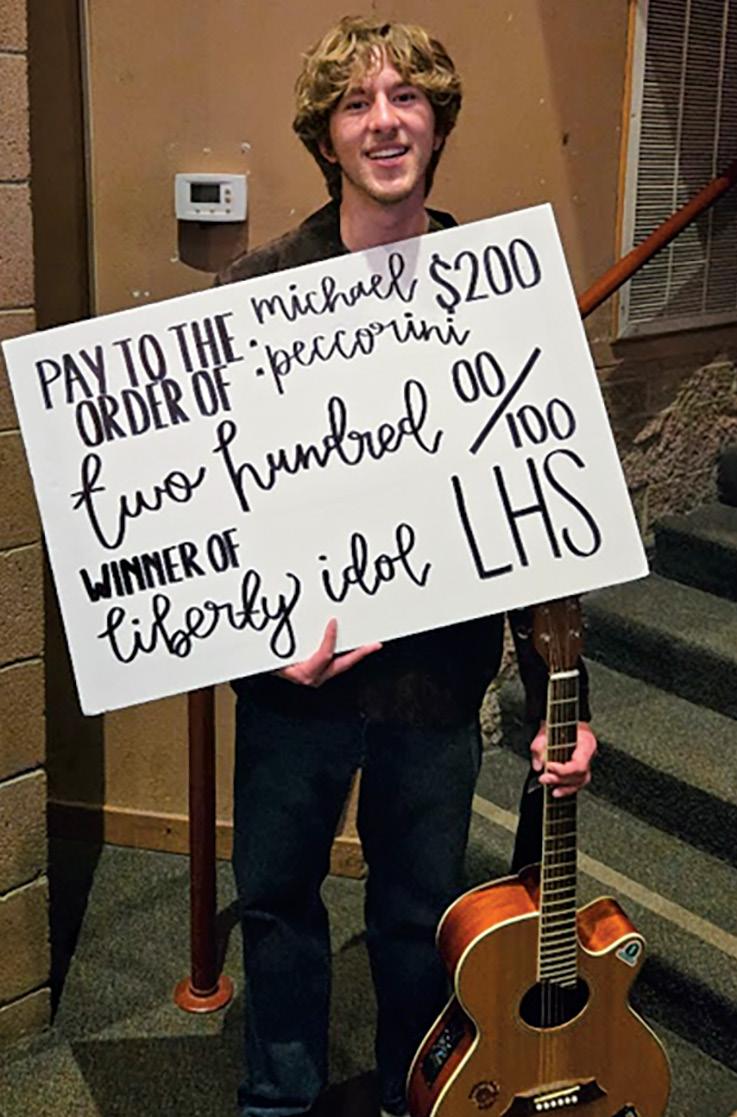 PAY TO THE ORDER OF : michael peccorini $200
two hundred 00/100
WINNER OF liberty idol LHS